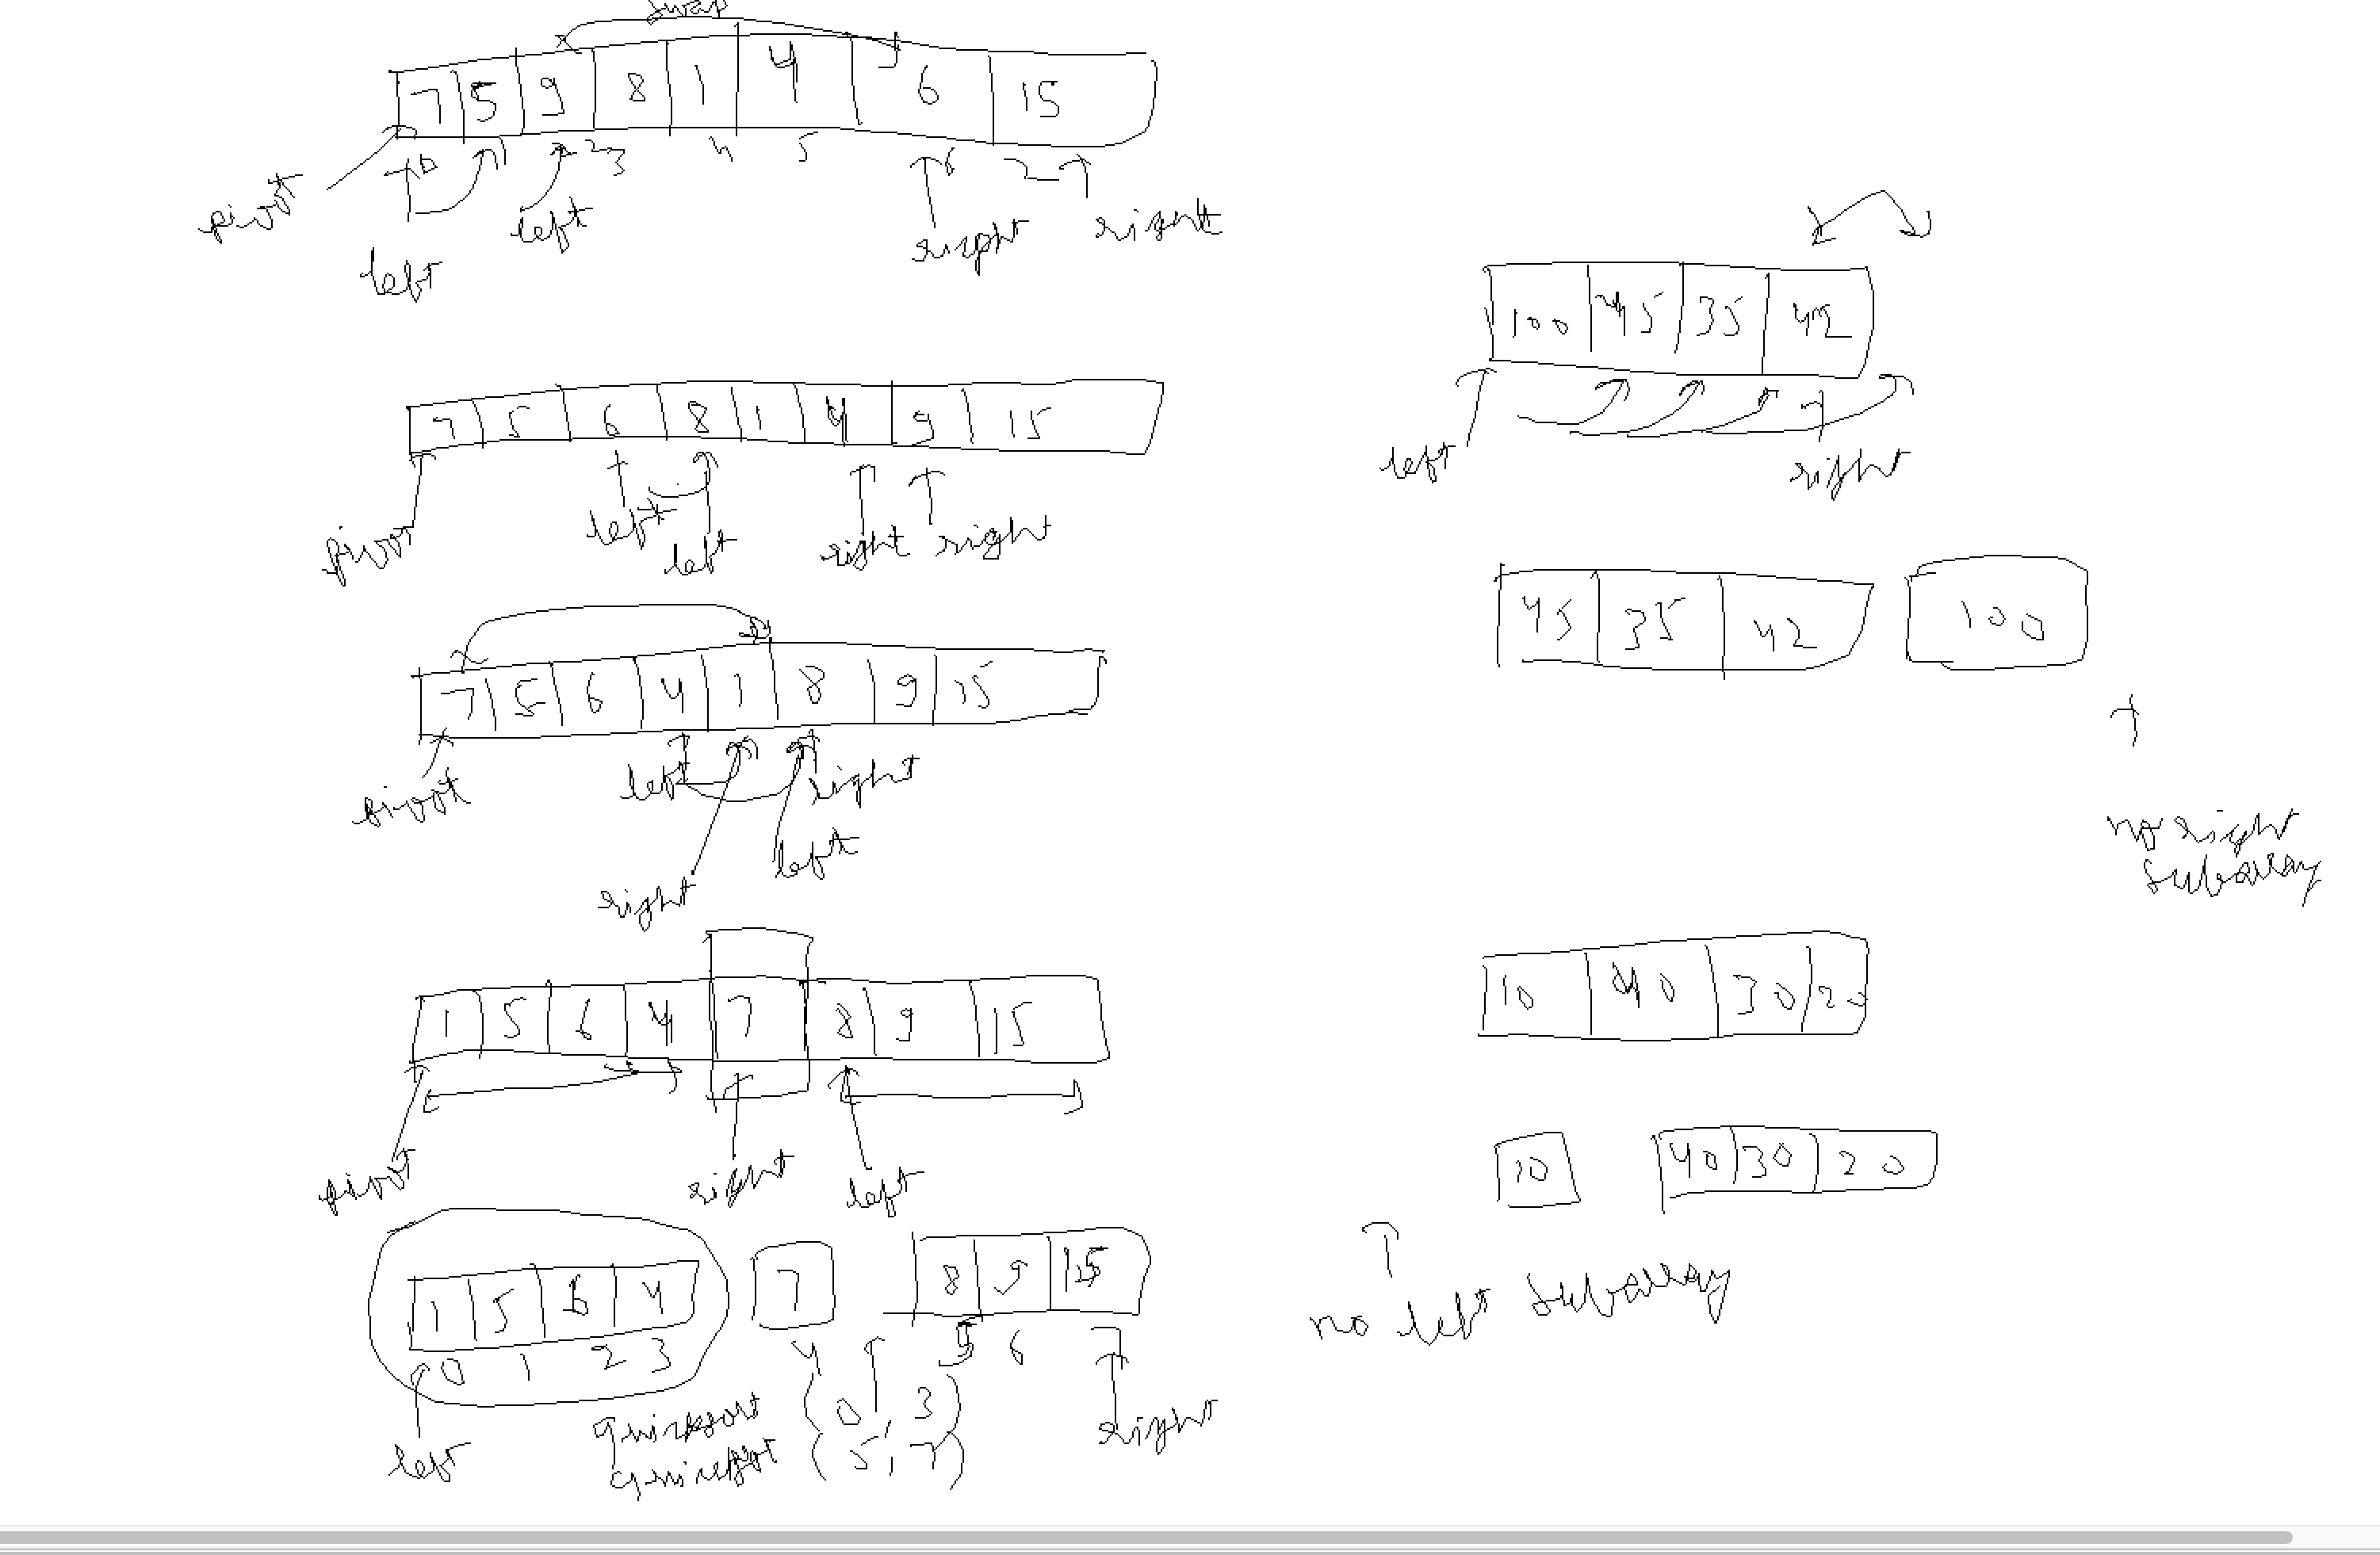 swap
7 5 9 8 1 4 6 15
0 1 2 3 4 5 6 7
pivot left left right right
7 5 6 8 1 4 9 15
pivot left left right right
7 5 6 4 1 8 9 15
pivot left right
right left
1 5 6 4 7 8 9 15
pivot right left
1 5 6 4 7 8 9 15
0 1 2 3 4 5 6 7
left quicksort (0, 3) right
quicksort (5, 7)
100 45 35 42
left right
45 35 42 100
no right
subarray
10 40 30 20
10 40 30 20
no left subarray